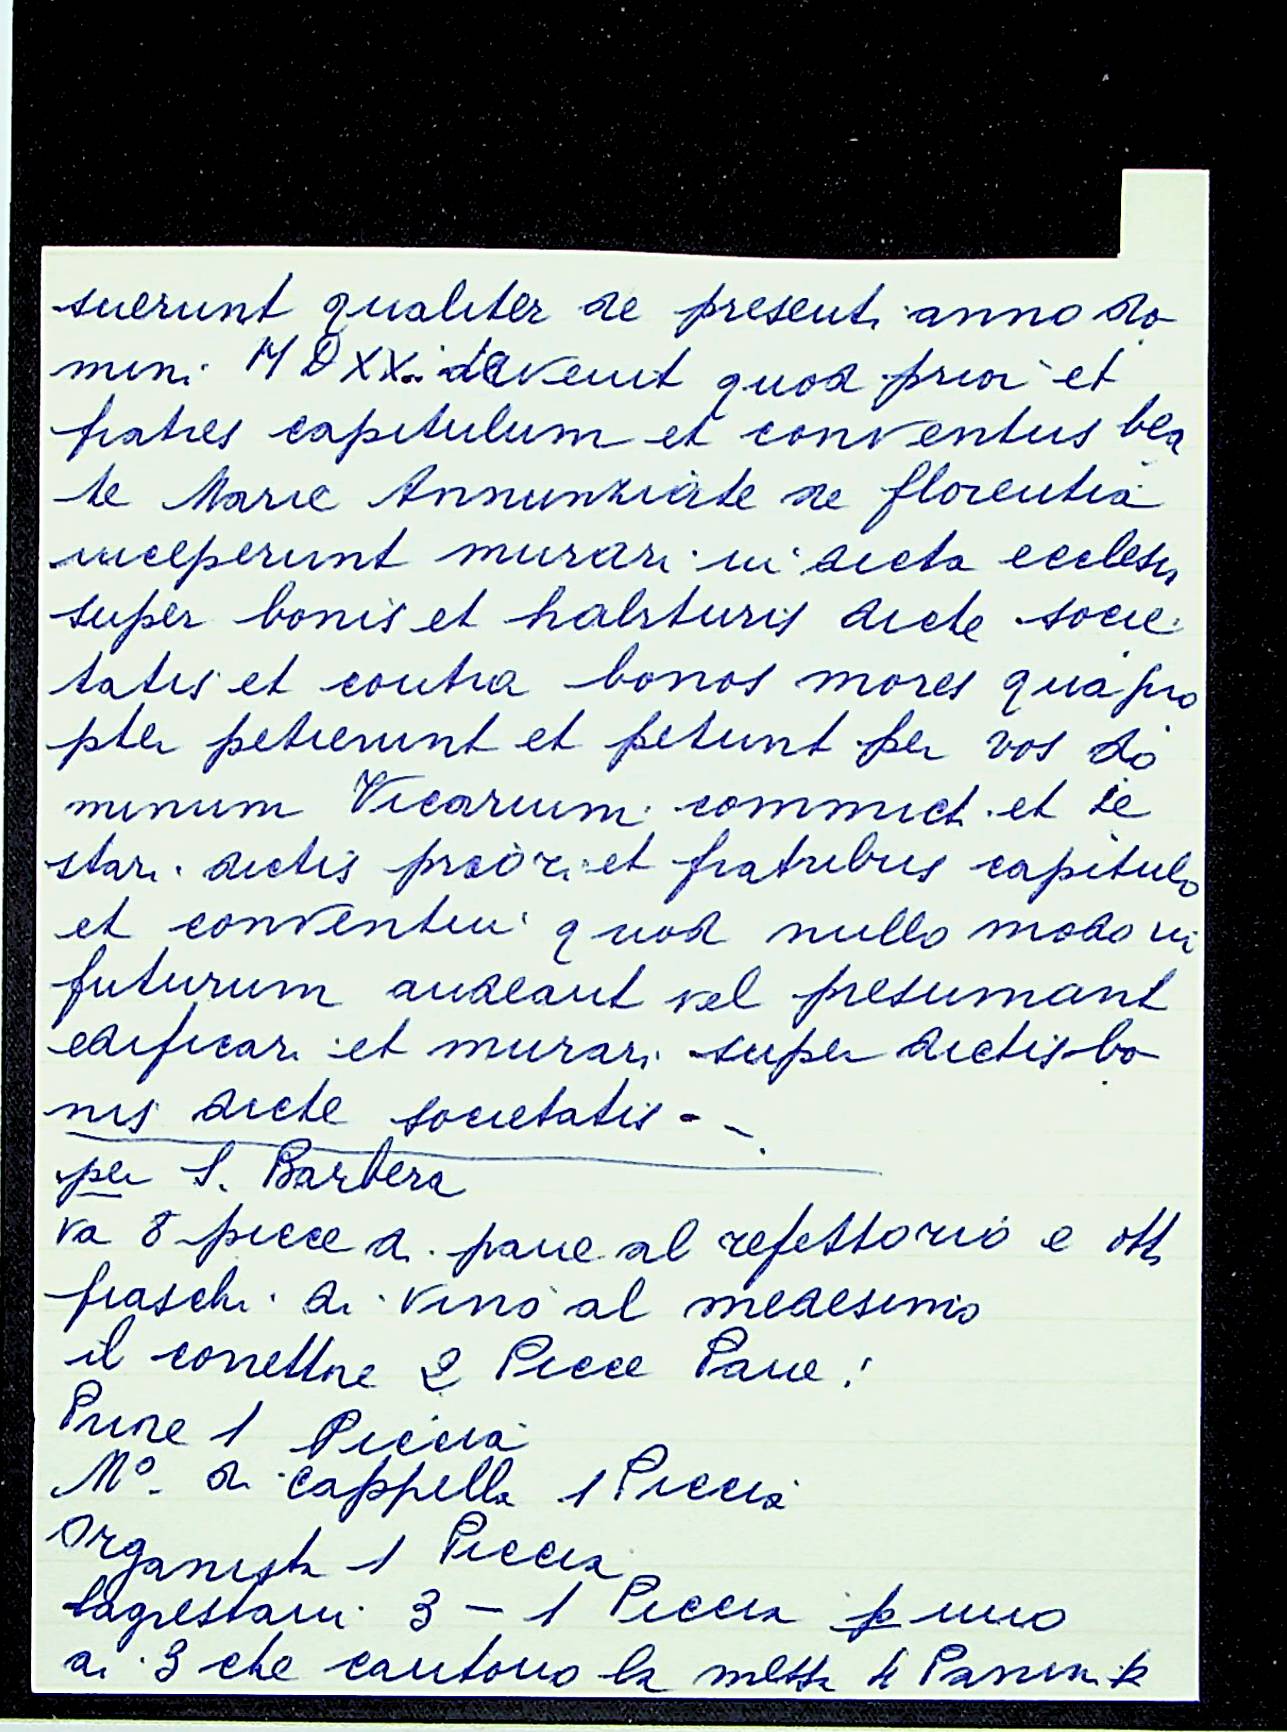 suerunt qualiter de presenti anno do
mini MDXX. devenit quod prior et
fratres capitulum et conventus bea
te Marie Annunziate de florentia
inceperunt murari in dicta ecclesia
super bonis et habituris dicte socie
tatis et contra bonos mores qua pro
pter petierunt et petunt per vos do
minum Vicarium commicti et te
stari dictis priori et fratribus capitulo
et conventui quod nullo modo in
futurum audeant vel presumant
edificari et murari super dictis bo
nis dicte societatis - -.
per S. Barbera
va 8 picce di pane al refettorio e otto
fiaschi di vino al medesimo
il correttore 2 Picce Pane:
Priore 1 Piccia
Mo. di cappella 1 Piccia
Organista 1 Piccia
Sagrestani 3 - 1 Piccia p uno
ai 3 che cantono la messa 4